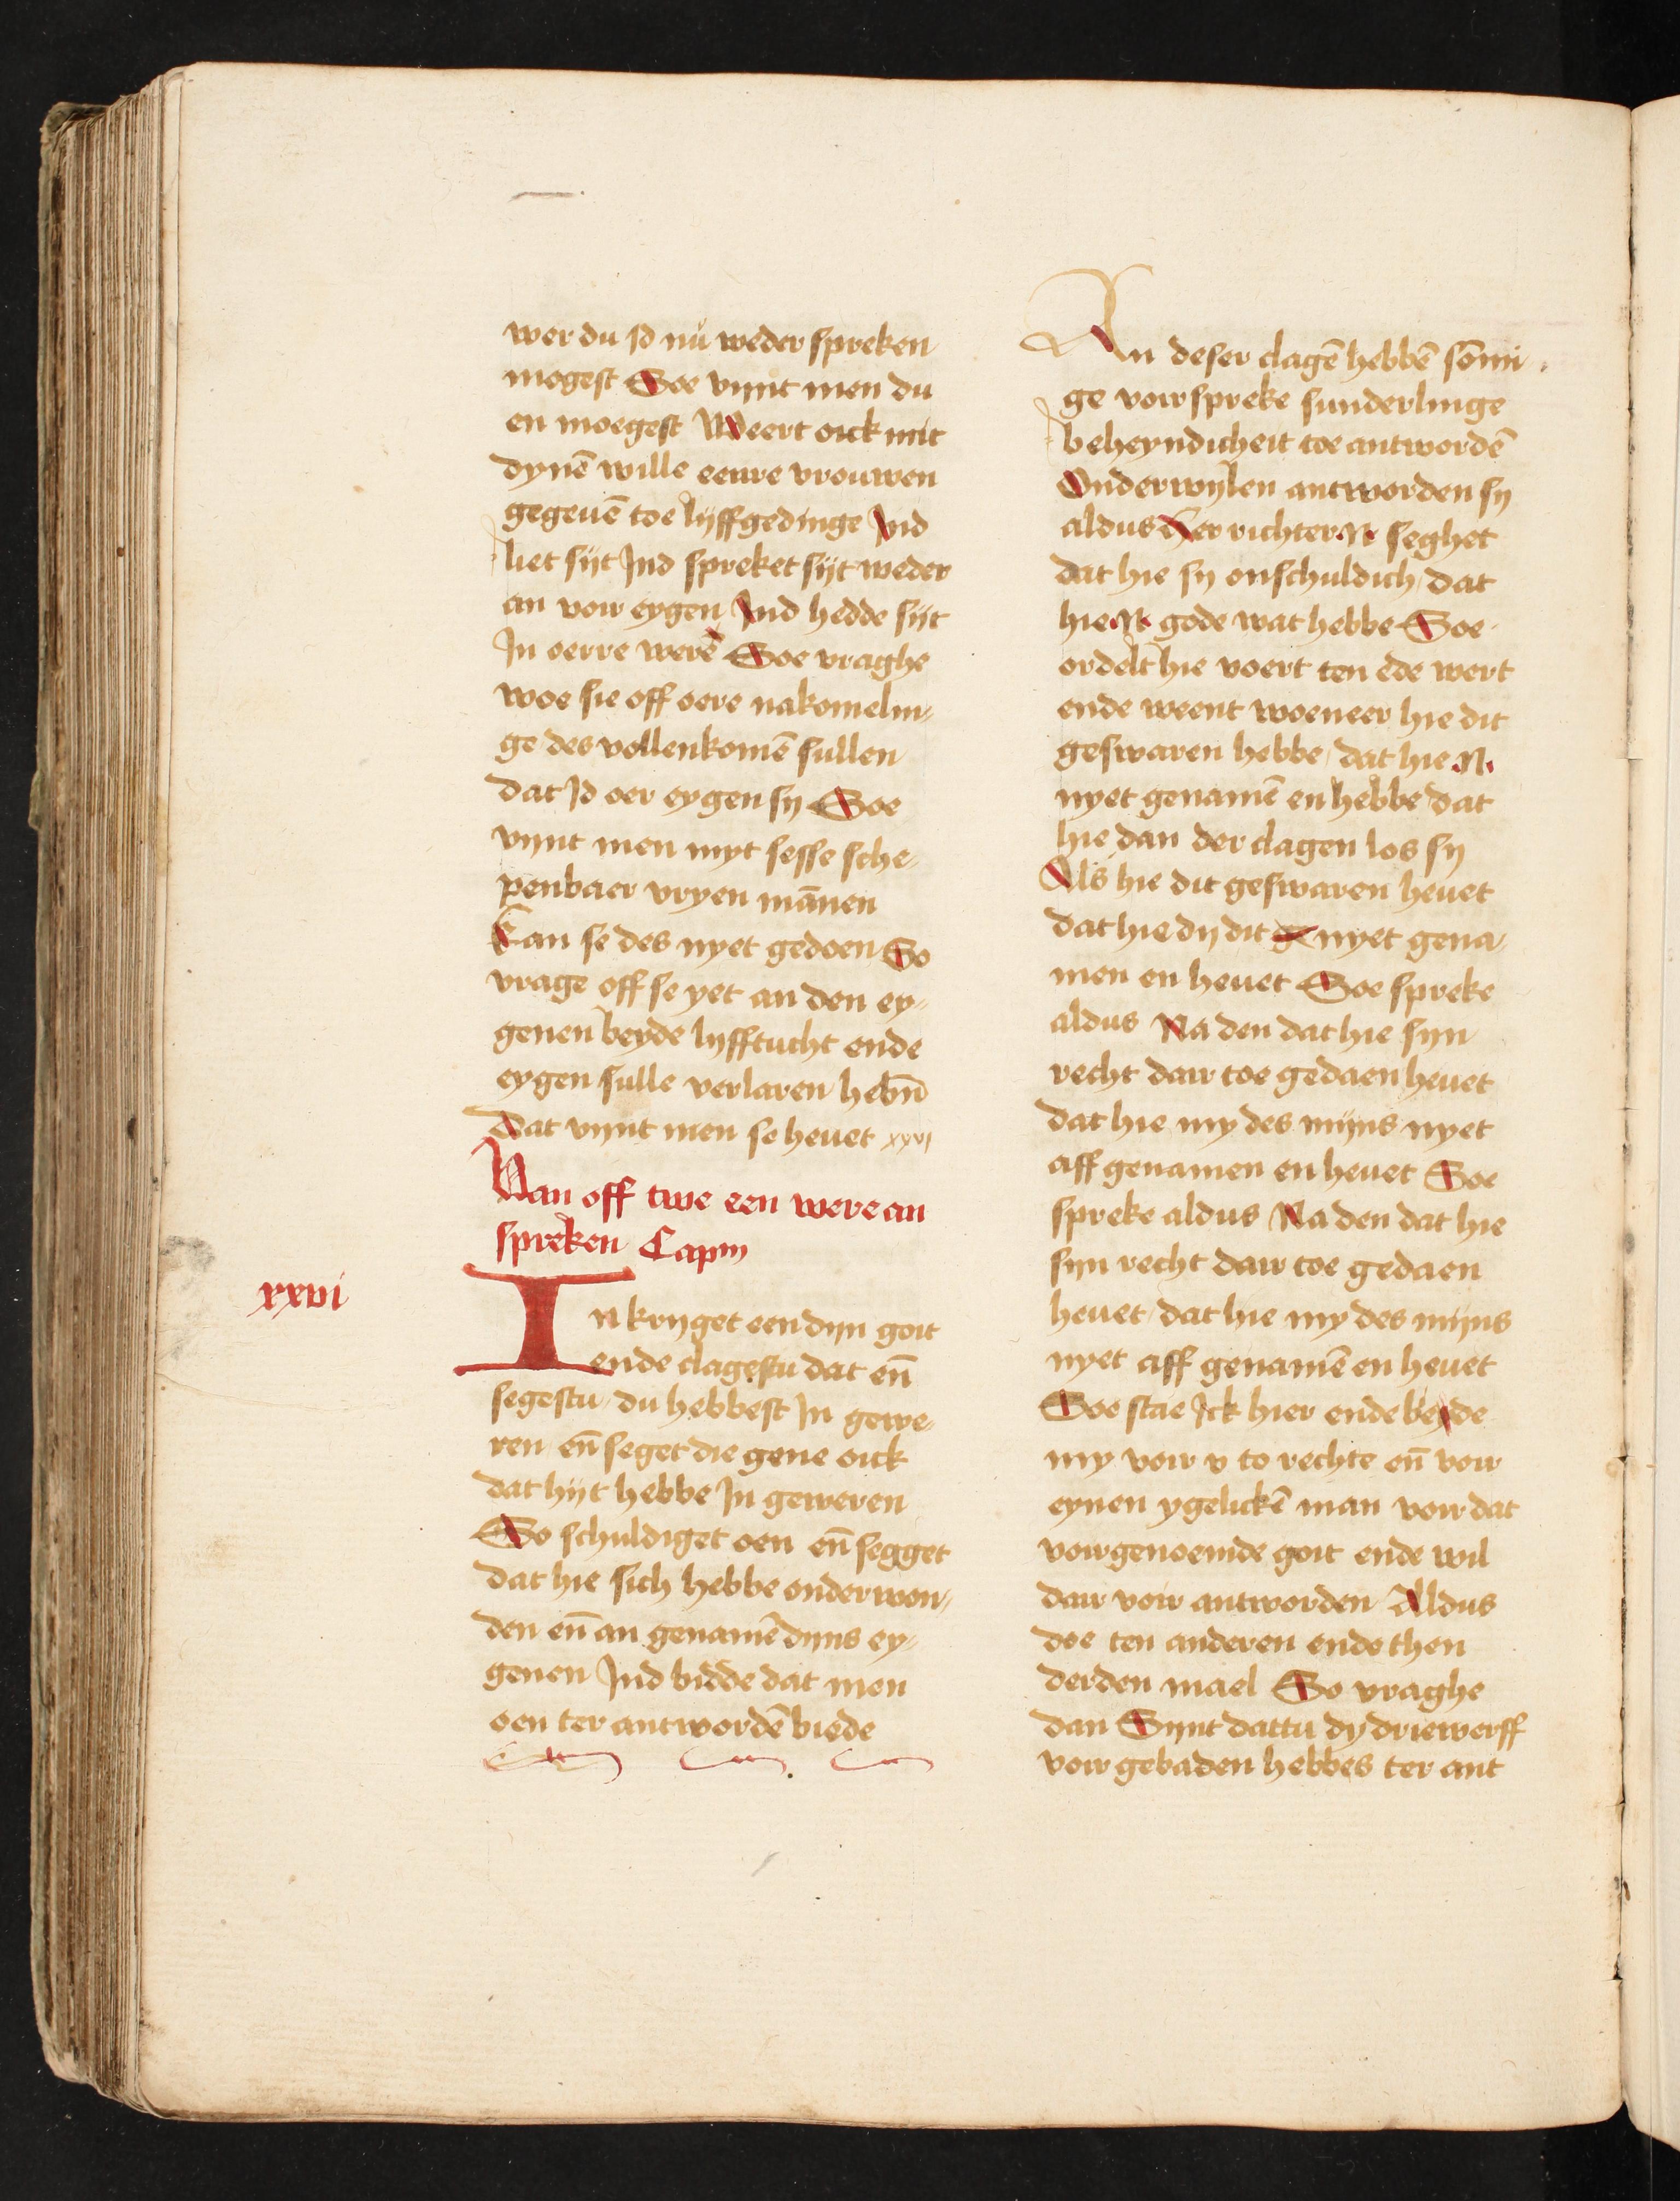 wer du Id nu weder spreken
mogest Soe vynt men du
en moegest Weert oick mit
dynē wille eenre vrouwen
gegeuē toe lyffgedinge Ind
liet sijt Ind spreket sijt weder
an voir eygen Ind hedde sijt
In oerre werē Soe vraghe
woe sie off oere nakomelin-
ge des vollenkomē sullen
dat Id oer eygen sy Soe
vynt men myt sesse sche-
penbaer vryen mānen
Kan se des nyet gedoen So
vrage off se yet an den ey-
genen beyde lyfftucht ende
eygen sulle verlaren hebn̄
Dat vynt men se heuet xxvj
Van off twe een were an
spreken Capm
xxvi
In kryget een dyn goit
ende clagestu dat en̄
segestu du hebbest In gewe-
ren en̄ seget die gene oick
dat hijt hebbe In geweren
So schuldiget oen en̄ segget
dat hie sich hebbe onderwon-
den en̄ an genamē dyns ey-
genen Ind bidde dat men
oen ter antwordē biede
An deser clagē hebbē sōmi
ge voirspreke sunderlinge
beheyndicheit toe antwordē
Onderwylen antworden sy
aldus Her richter .N. seghet
dat hie sy onschuldich dat
hie .N. gode wat hebbe Soe
ordelt hie voert ten ede wert
ende weent woeneer hie dit
geswaren hebbe dat hie .N.
nyet genamē en hebbe dat
hie dan der clagen los sy
Als hie dit geswaren heuet
dat hie dy dit nyet gena-
men en heuet Soe spreke
aldus Na den dat hie syn
recht dair toe gedaen heuet
dat hie my des mijns nyet
aff genamen en heuet Soe
spreke aldus Na den dat hie
syn recht dair toe gedaen
heuet dat hie my des mijns
nyet aff genamē en heuet
Soe stae Ick hier ende beyde
my voir v to rechte en̄ voir
eynen ygelickē man voir dat
voirgenoemde goit ende wil
dair voir antworden Aldus
doe ten anderen ende then
derden mael So vraghe
dan Synt dattu dy driewerff
voir gebaden hebbes ter ant